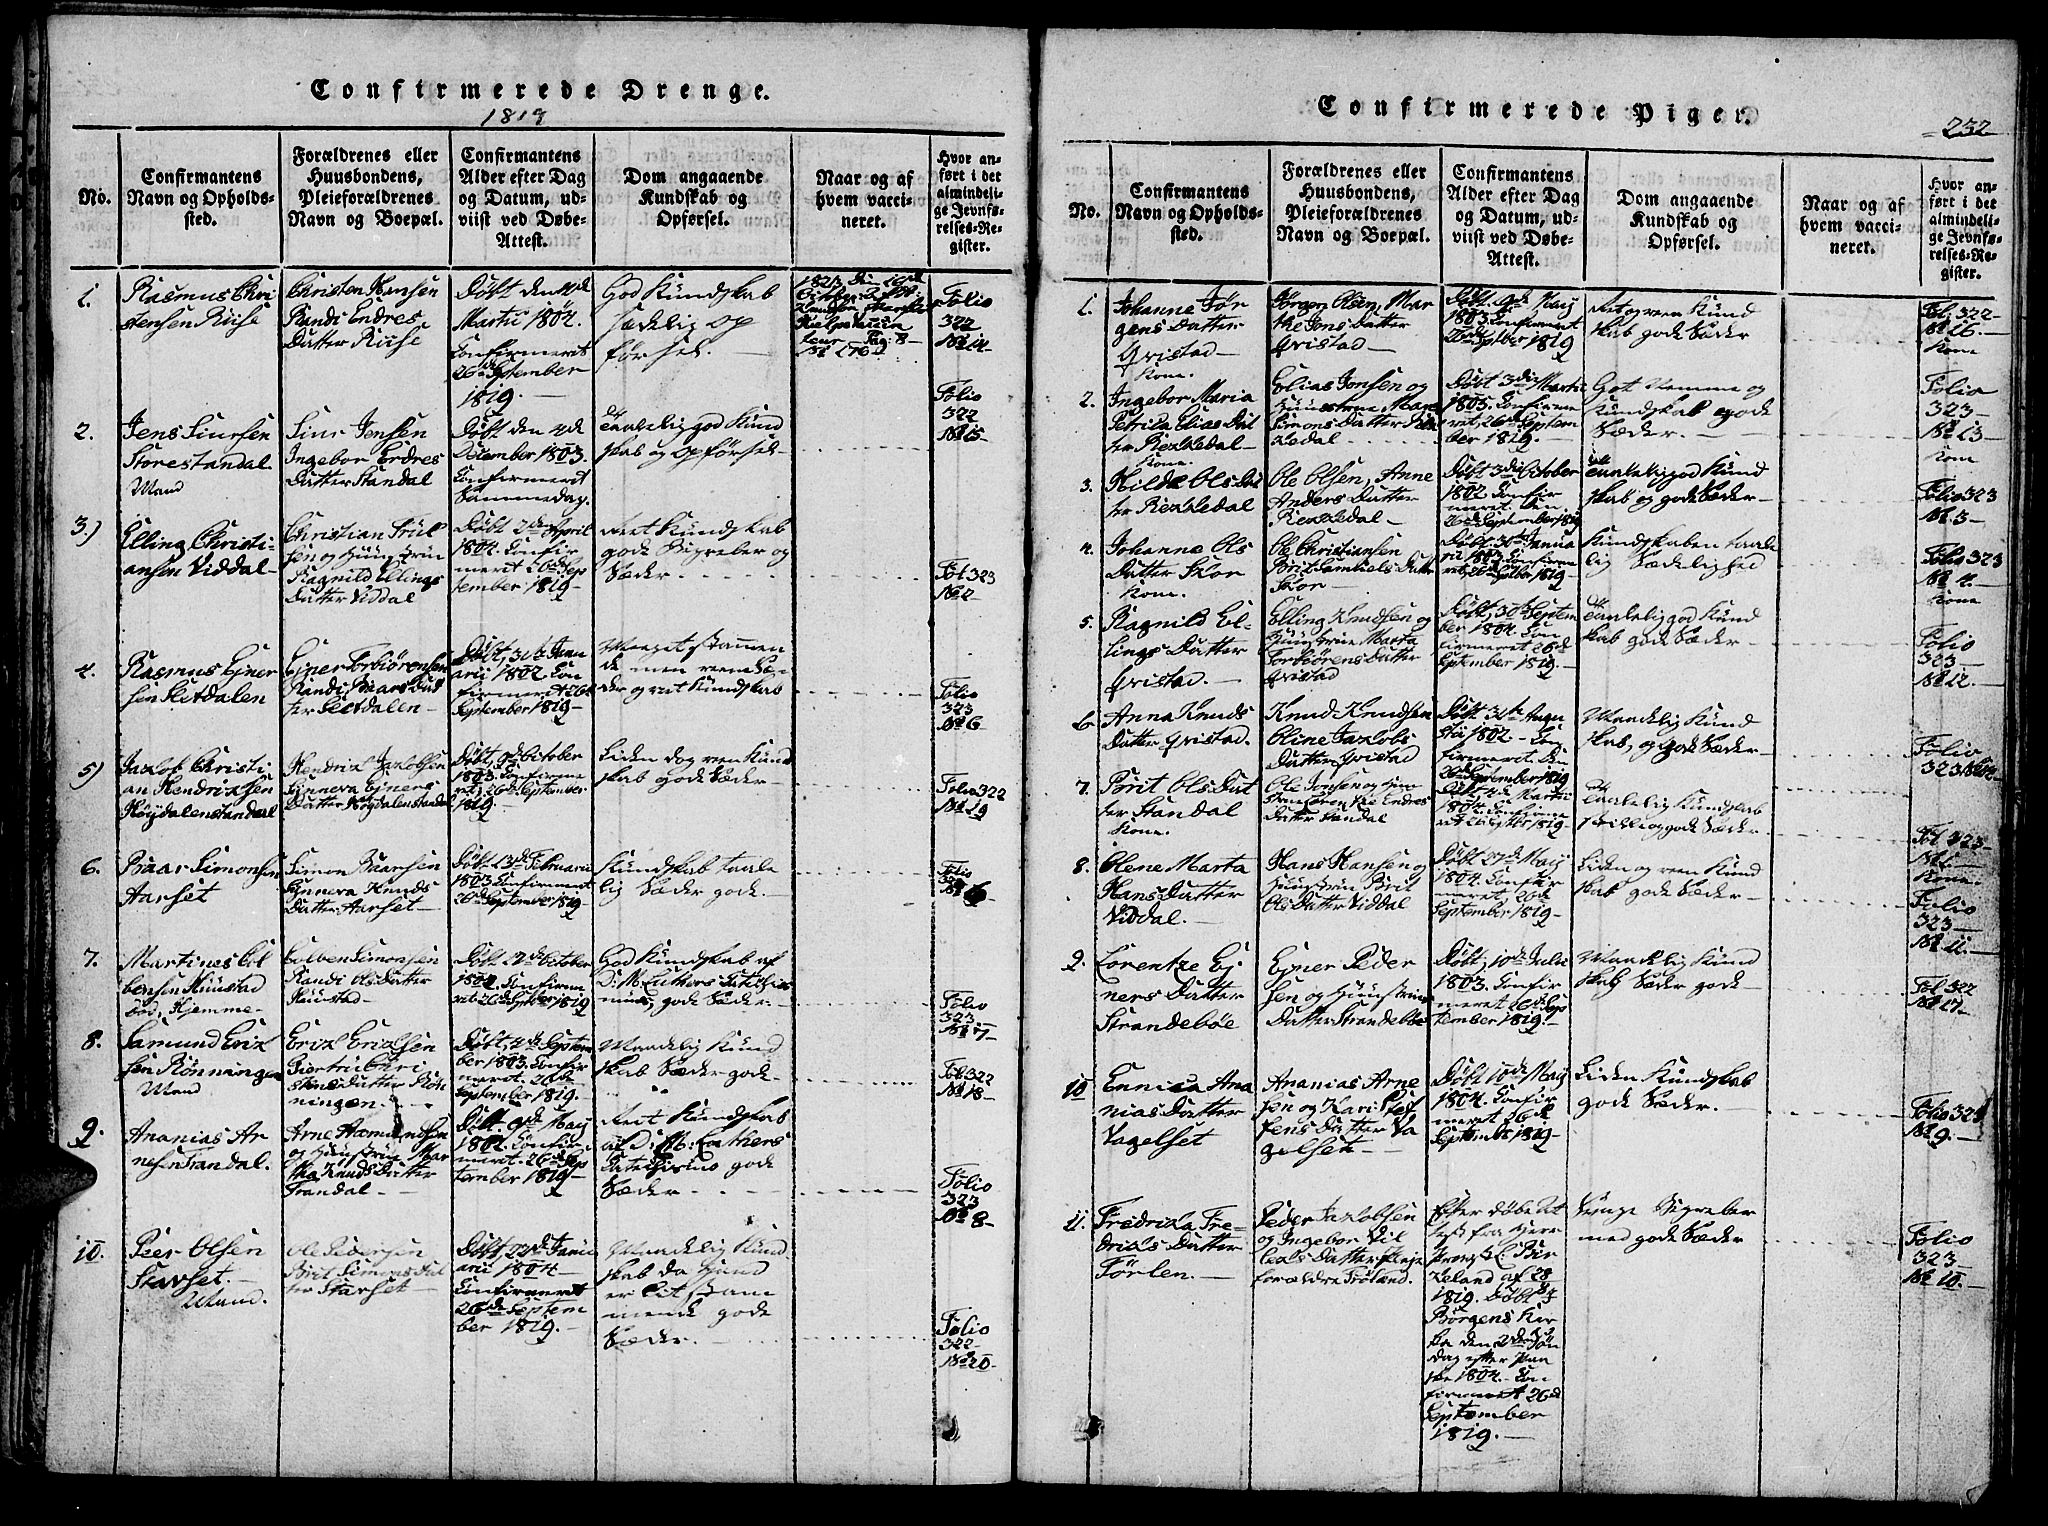 Confirmerede Drenge.
1819
No.
Confirmantens
Navn og Opholds-
sted.
Forældrenes eller
Huusbondens,
Pleieforældrenes
Navn og Boepæl.
Confirmantens
Alder efter Dag
og Datum, ud-
viist ved Døbe-
Attest.
Dom angaaende
Kundskab og
Opførsel.
Naar og af
hvem vacci-
neret.
Hvor an-
ført i det
almindeli-
ge Jevnfø-
relses-Re-
gister.
1.
Rasmus Chri
stensen Riise
Christen Hansen
Randi Endres
Datter Riise
Døbt den
Martii 1804.
Confirmerit
26de September
1819.
God Kundskab
Sædelig Op
førsel.
Folio
322
No 14
2.
Jens Siursen
Storestandal
Mand
Siur Jensen
Ingebor Endres
Datter Standal
Døbt den
December 1803.
Confirmerit
Samme dag.
god Kund
skab og Opførsel
Folio
322
No 15
3)
Elling Christi-
ansen Viddal
Christian Trul
sen og Huustrue
Ragnild Ellings
Datter Viddal
Døbt 2den April
1804. Confir
merit 26de Sep
tember 1819
Ret Kundskab
gode Begreber og
Sæder
Fol 323
No 2
4.
Rasmus Ejner
sen Sætdalen
Ejner Torbiørnsen
Randi Baars Dat
ter Sætdalen
Døbt, 31te Janu
arii 1802. Con
firmerit 26de
September 1819
Meget stammen
de men
og ret Kundskab
Folio
323
No 6
5)
Jacob Christi
an Hendricksen
Høgdalenstandal
Hendrik Jacobsen
Synneva Ejners
Datter Høgdalenstandal
Døbt, 9de October
1803. Confirme
rit, 26de September
1819
Liden dog reen Kund
skab gode Sæder
Folio 322
No 19
6.
Baar Simonsen
Aarset
Simon Baarsen
Synneva Knuds
Datter Aarset
Døbt 13de Februarii
1803 Confirmeret
26de September 1819
Kundskab taale
lig Sæder gode
Folio
No 6
7.
Martines Col
bensen Huustad
Hjemme
Colben Simonsen
Randi Ols Datter
Huustad
Døbt, 27de October
1804. Confirme
rit 26de Septbr 1819
God Kundskab af
D: M. Luthers Catechis
mus, gode Sæder
Folio
323
No 7
8.
Samund Erik
sen Rønningen
Mand
Erik Eriksen
Datter Røn
ningen.
Døbt, Septem
ber 1803. Confir
meret 26de
September 1819.
Maadelig Kund
skab Sæder gode
Fol 322
No 18
9.
Ananias Ar
nesen Trandal.
Arne Asmundsen
og Huustrue Mar
the Knuds Datter
Trandal
Døbt. 9de Maij
1802. Confir
meret. 26de Sep
tember 1819
Ret Kundskab
af D: M: Luthers
Catechismo gode
Sæder
Folio
323
No 8
10.
Peer Olsen
Starset.
Mand.
Ole Pedersen
Brit Simons Dat
ter Starset
Døbt, 22de Janu
arii 1804
Confirmeret
26de Septem
ber 1819.
Maadelig Kund
skab da Hand
er lit stam
mende gode
Sæder.
Folio
322
No 20
Confirmerede Piger.
232
No.
Confirmantens
Navn og Opholds-
sted.
Forældrenes eller
Huusbondens,
Pleieforældrenes
Navn og Boepæl.
Confirmantens
Alder efter Dag
og Datum, ud-
viist ved Døbe-
Attest.
Dom angaaende
Kundskab og
Opførsel.
Naar og af
hvem vacci-
neret.
Hvor an-
ført i det
almindeli-
ge Jevnfø-
relses-Re-
gister.
1.
Johanne Jør
gens Datter
Qvistad
Kone.
Jørgen Olsen, Mar
the Jons Datter
Qvistad
Døbt. 9de Maij
1803 Confirmeret
26de Septber 1819
Ret og reen Kund
skab gode Sæder
Fol. 322
No 16
Kone
2.
Ingebor Maria
Petrica Elias Dat
ter Rekkedal
Kone.
Elias Jonsen og
Huustrue
Simons Datter Rek
kedal
Døbt 3die Martii
1805. Confirme
ret, 26de Septem
ber 1819.
Got Nemme og
Kundskab gode
Sæder.
Folio
323
No 13
Kone
3.
Hilde Ols Dat
ter Rekkedal
Ole Olsen, Anne
Anders Datter
Rekkedal
Døbt 3die October
1802 Confir
meret. Den
26de September 1819
god Kund
skab og gode Sæder
Folio 323
No 3
4.
Johanne Ols
Datter Skor
Kone.
Ole Christiansen
Brit Samuels Datter
Skor
Døbt. 30te Janua
rii 1803 Confirme
ret, 26de Septber 1819
Kundskaben taale
lig Sædelighed
Folio 323
No 4
Kone
5.
Ragnild El-
lings Datter
Qvistad.
Elling Knudsen og
Huustrue Marta
Torbiørens Datter
Qvistad
Døbt, 30te Septem
ber 1804. Con
firmeret 26de
September 1819.
god Kund
skab gode Sæder
Folio
323
No 12
6
Anna Knuds
Datter Qvistad.
Knud Knudsen
Oline Jacobs
Datter Qvistad
Døbt 31te Augu
sti 1802. Con
firmeret. Den
26de September 1819
Maadelig Kund
skab, og gode Sæder
Folio
323
7.
Brit Ols Dat
ter Standal
Kone.
Ole Jonsen og
Endres
Datter Standal
Døbt Martii
1804. Confirme
ret 26 Septbr 1819
Kundskab
gode Sæder
Fol 323
Kone
8.
Olene Marta
Hans Datter
Viddal.
Hans Hansen og
Huustrue Brit
Ols Datter Viddal
Døbt 27de Maij
1804. Confir
meret 26de
September 1819
Liden og reen Kund
skab gode Sæder
Folio
323
No 11.
9.
Lorentze Ej
ners Datter
Strandebøe
Ejner Peder
sen og Huustrue
Datter Strandebøe
Døbt, 10de Julii
1803. Confir
meret 26de Sep
tember 1819.
Maadelig Kund
skab Sæder gode
Fol 322
No 17
10
Ennica Ana
nias Datter
Vagelset
Ananias Arne
sen og Kari Stef
fens Datter Va
gelset
Døbt 10de Maij
1804. Confir
meret 26de
September 1819
Liden Kundskab
gode Sæder.
Folio 323
No 9.
11.
Fredrika Fre-
driks Datter
Tørlen.
Peder Jacobsen
og Ingebor Vil
Datter Pleje
forældre
Efter døbe At
test fra Herr
Bir
keland af 28
1819. Døbt i
Børgens Kir
ke den 2den Søn
dag efter Paa
ske 1804. Con
firmeret 26de
September
1819.
Svage Begreber
med gode Sæder
Folio
323
No 10.